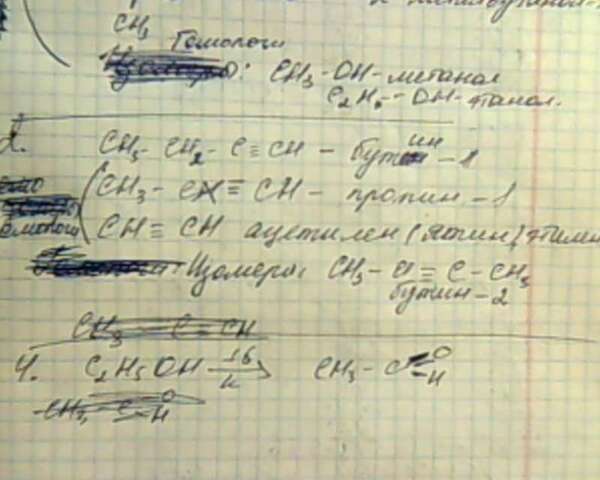 CH3
Гомологи
: CH3-OH-метанол
C2H5-OH-этанол.
2. CH3-CH2-C≡CH - бутин-1
CH3-C≡CH - пропин-1
гомологи CH≡CH ацетилен (этин)
Изомеры: CH3-C≡C-CH3
бутин-2
CH3-C≡CH
4. C2H5OH → CH3-C=O-H
CH3-C=O-H